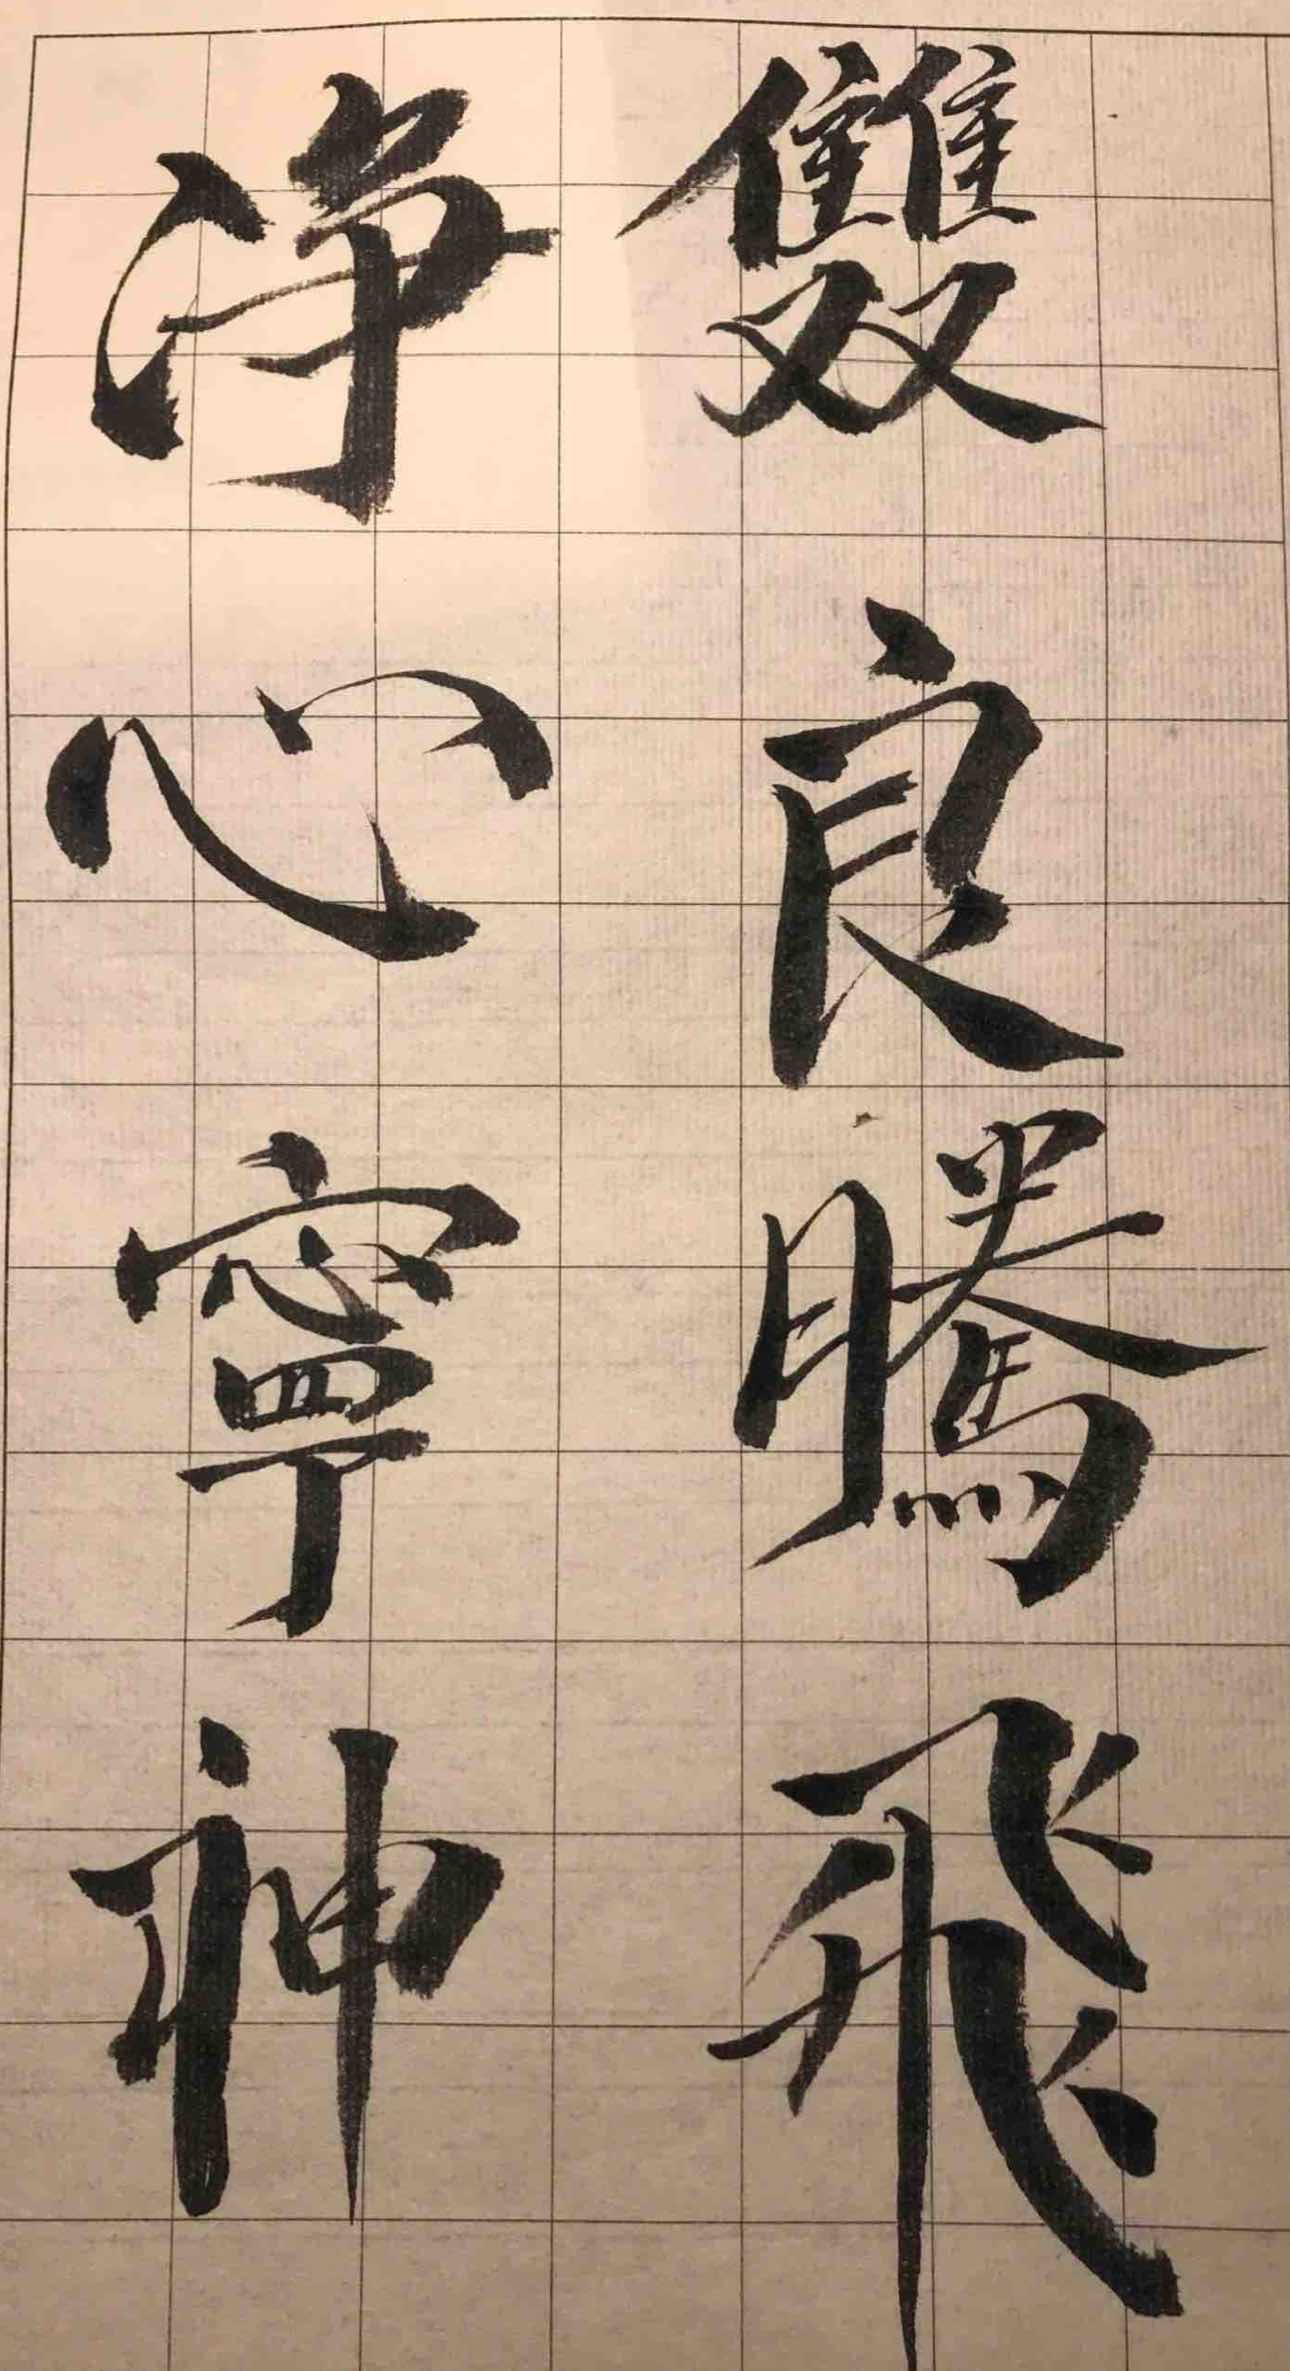 雙良騰飛
淨心寧神